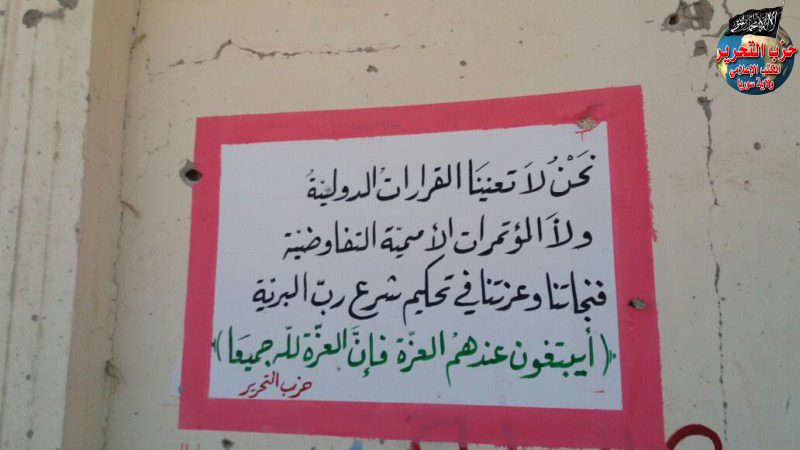 حزب التحرير
المكتب الإعلامي
ولاية سوريا
نَحْنُ لاَ تعنينَا القراراتُ الدوليّةُ
ولاَ المؤتمرات الأمميّة التفاوضيّة
فنجاتنا وعزتنا في تحكيم شرع ربّ البريّة
﴿أيبتغون عندهمُ العزّة فإنَّ العزّة للّه جميعًا﴾
حزب التحرير